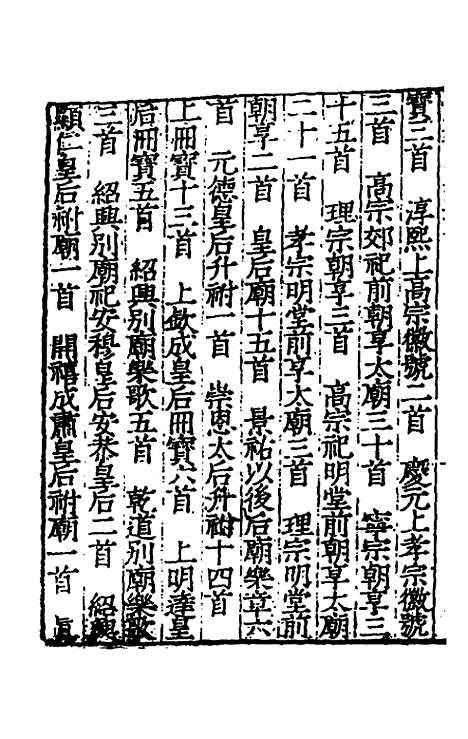 寳三首　淳熙上高宗徽號二首　慶元上孝宗徽號
三首　高宗郊祀前朝享太廟三十首　寧宗朝享三
十五首　理宗朝享三首　高宗祀明堂前朝享太廟
二十一首　孝宗明堂前享太廟三首　理宗明堂前
朝享二首　皇后廟十五首　景祐以後后廟樂章六
首　元德皇后升祔一首　崇恩太后升祔十四首
上冊寳十三首　上欽成皇后冊寳六首　上明達皇
后冊寳五首　紹興別廟樂歌五首　乾道別廟樂歌
三首　紹興別廟祀安穆皇后安恭皇后二首　紹興
顯仁皇后祔廟一首　開禧成肅皇后祔廟一首　眞